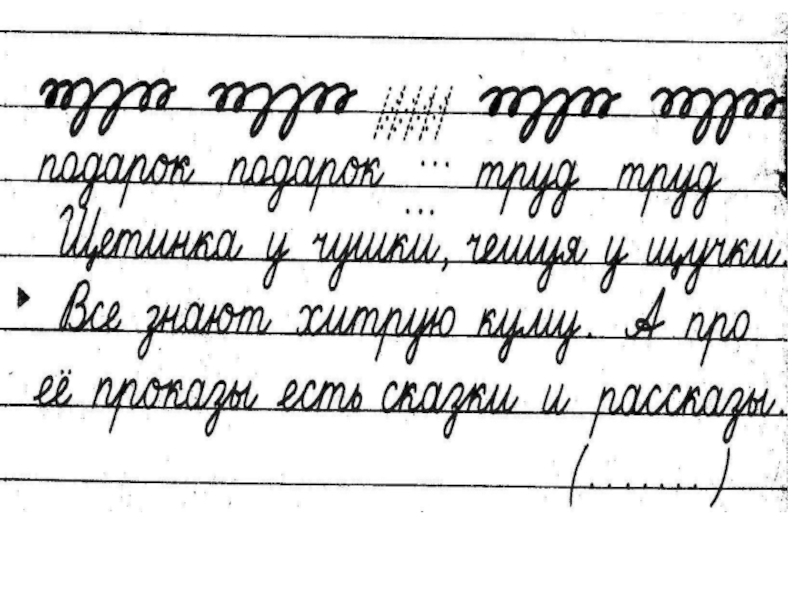 подарок подарок ... труд труд
...
Щетинка у чушки, чешуя у щучки.
Все знают хитрую куму. А про
её проказы есть сказки и рассказы.
(.......)